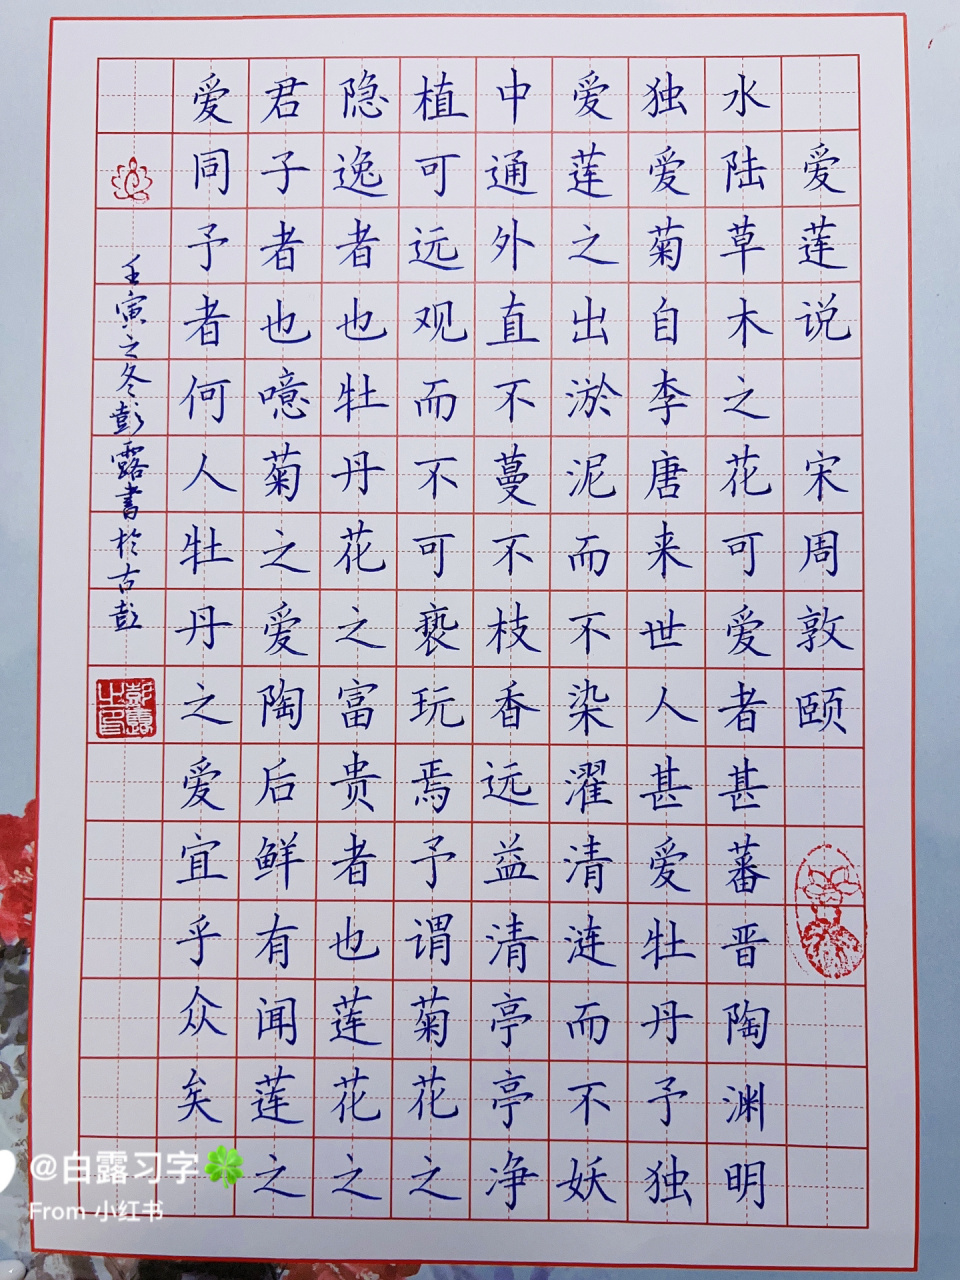 爱莲说 宋周敦颐
水陆草木之花可爱者甚蕃晋陶渊明
独爱菊自李唐来世人甚爱牡丹予独
爱莲之出淤泥而不染濯清涟而不妖
中通外直不蔓不枝香远益清亭亭净
植可远观而不可亵玩焉予谓菊花之
隐逸者也牡丹花之富贵者也莲花之
君子者也噫菊之爱陶后鲜有闻莲之
爱同予者何人牡丹之爱宜乎众矣
壬寅之冬彭露书于古彭
彭露之印
@白露习字🍀
From 小红书